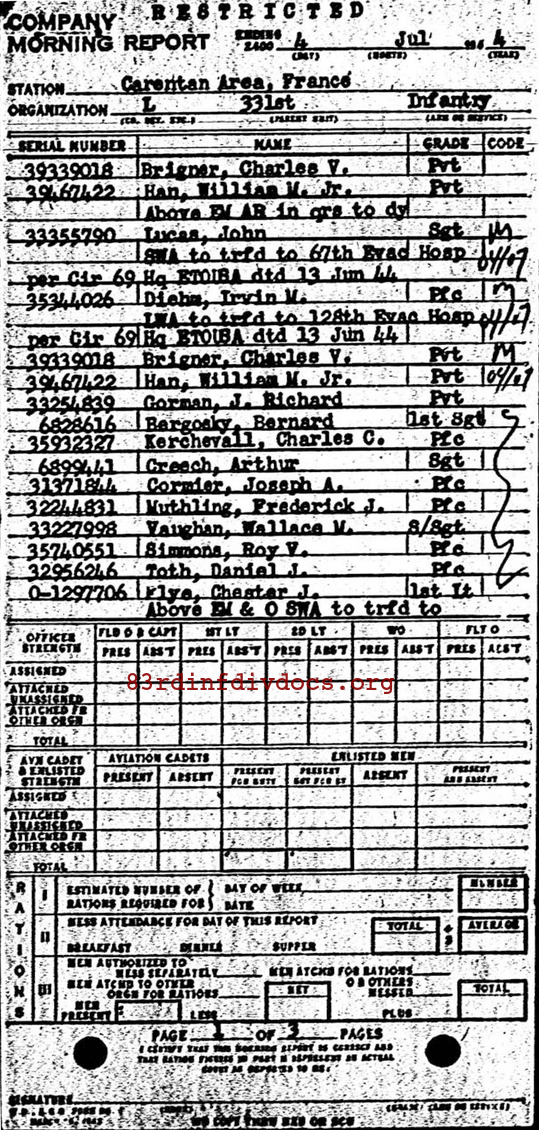 RESTRICTED
COMPANY
MORNING REPORT ENDING 2400 4 Jul 194 4
(DAY) (MONTH) (YEAR)
STATION Carentan Area, France
ORGANIZATION L 331st Infantry
(CO. DET. ETC.) (PARENT UNIT) (ARM OR SERVICE)
SERIAL NUMBER NAME GRADE CODE
39339018 Brigner, Charles V. Pvt
39467422 Han, William M. Jr. Pvt
Above EM AR in qrs to dy
33355790 Lucas, John Sgt M
SWA to trfd to 67th Evac Hosp 04/07
per Cir 69 Hq ETOUSA dtd 13 Jun 44
35344026 Diehm, Irvin M. Pfc M
LWA to trfd to 128th Evac Hosp 04/07
per Cir 69 Hq ETOUSA dtd 13 Jun 44
39339018 Brigner, Charles V. Pvt M
39467422 Han, William M. Jr. Pvt 04/07
33254839 Gorman, J. Richard Pvt
6828616 Bergosky, Bernard 1st Sgt
35932327 Kerchevall, Charles C. Pfc
6899441 Creech, Arthur Sgt
31371844 Cormier, Joseph A. Pfc
32244831 Muthling, Frederick J. Pfc
33227998 Vaughan, Wallace M. S/Sgt
35740551 Simmons, Roy V. Pfc
32956246 Toth, Daniel J. Pfc
O-1297706 Flye, Chester J. 1st Lt
Above EM & O SWA to trfd to
OFFICER STRENGTH FLD O & CAPT 1ST LT 2D LT WO FLT O
PRES ABS'T PRES ABS'T PRES ABS'T PRES ABS'T PRES ABS'T
ASSIGNED
83rdinfdivdocs.org
ATTACHED UNASSIGNED
ATTACHED FR OTHER ORGN
TOTAL
AVN CADET & ENLISTED STRENGTH AVIATION CADETS ENLISTED MEN
PRESENT ABSENT PRESENT FOR DUTY PRESENT NOT FOR DY ABSENT PRESENT AND ABSENT
ASSIGNED
ATTACHED UNASSIGNED
ATTACHED FR OTHER ORGN
TOTAL
RATIONS
I ESTIMATED NUMBER OF RATIONS REQUIRED FOR DAY OF WEEK DATE NUMBER
II MESS ATTENDANCE FOR DAY OF THIS REPORT TOTAL ÷ 3 AVERAGE
BREAKFAST DINNER SUPPER
III MEN AUTHORIZED TO MESS SEPARATELY MEN ATCHD FOR RATIONS
MEN ATCHD TO OTHER ORGN FOR RATIONS NET OTHERS MESSED TOTAL
MEN PRESENT LESS PLUS
PAGE 1 OF 3 PAGES
I CERTIFY THAT THIS MORNING REPORT IS CORRECT AND
SIGNATURE